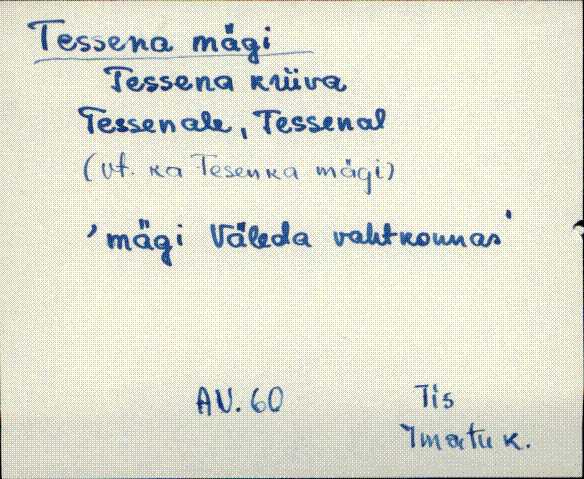 Tessena mägi
Tessena krüva
Tessenale, Tessenal
(vt. ka Tesenka mägi)
'mägi Väleda vahtkonnas'
AV. 60
Tis
Imatu k.